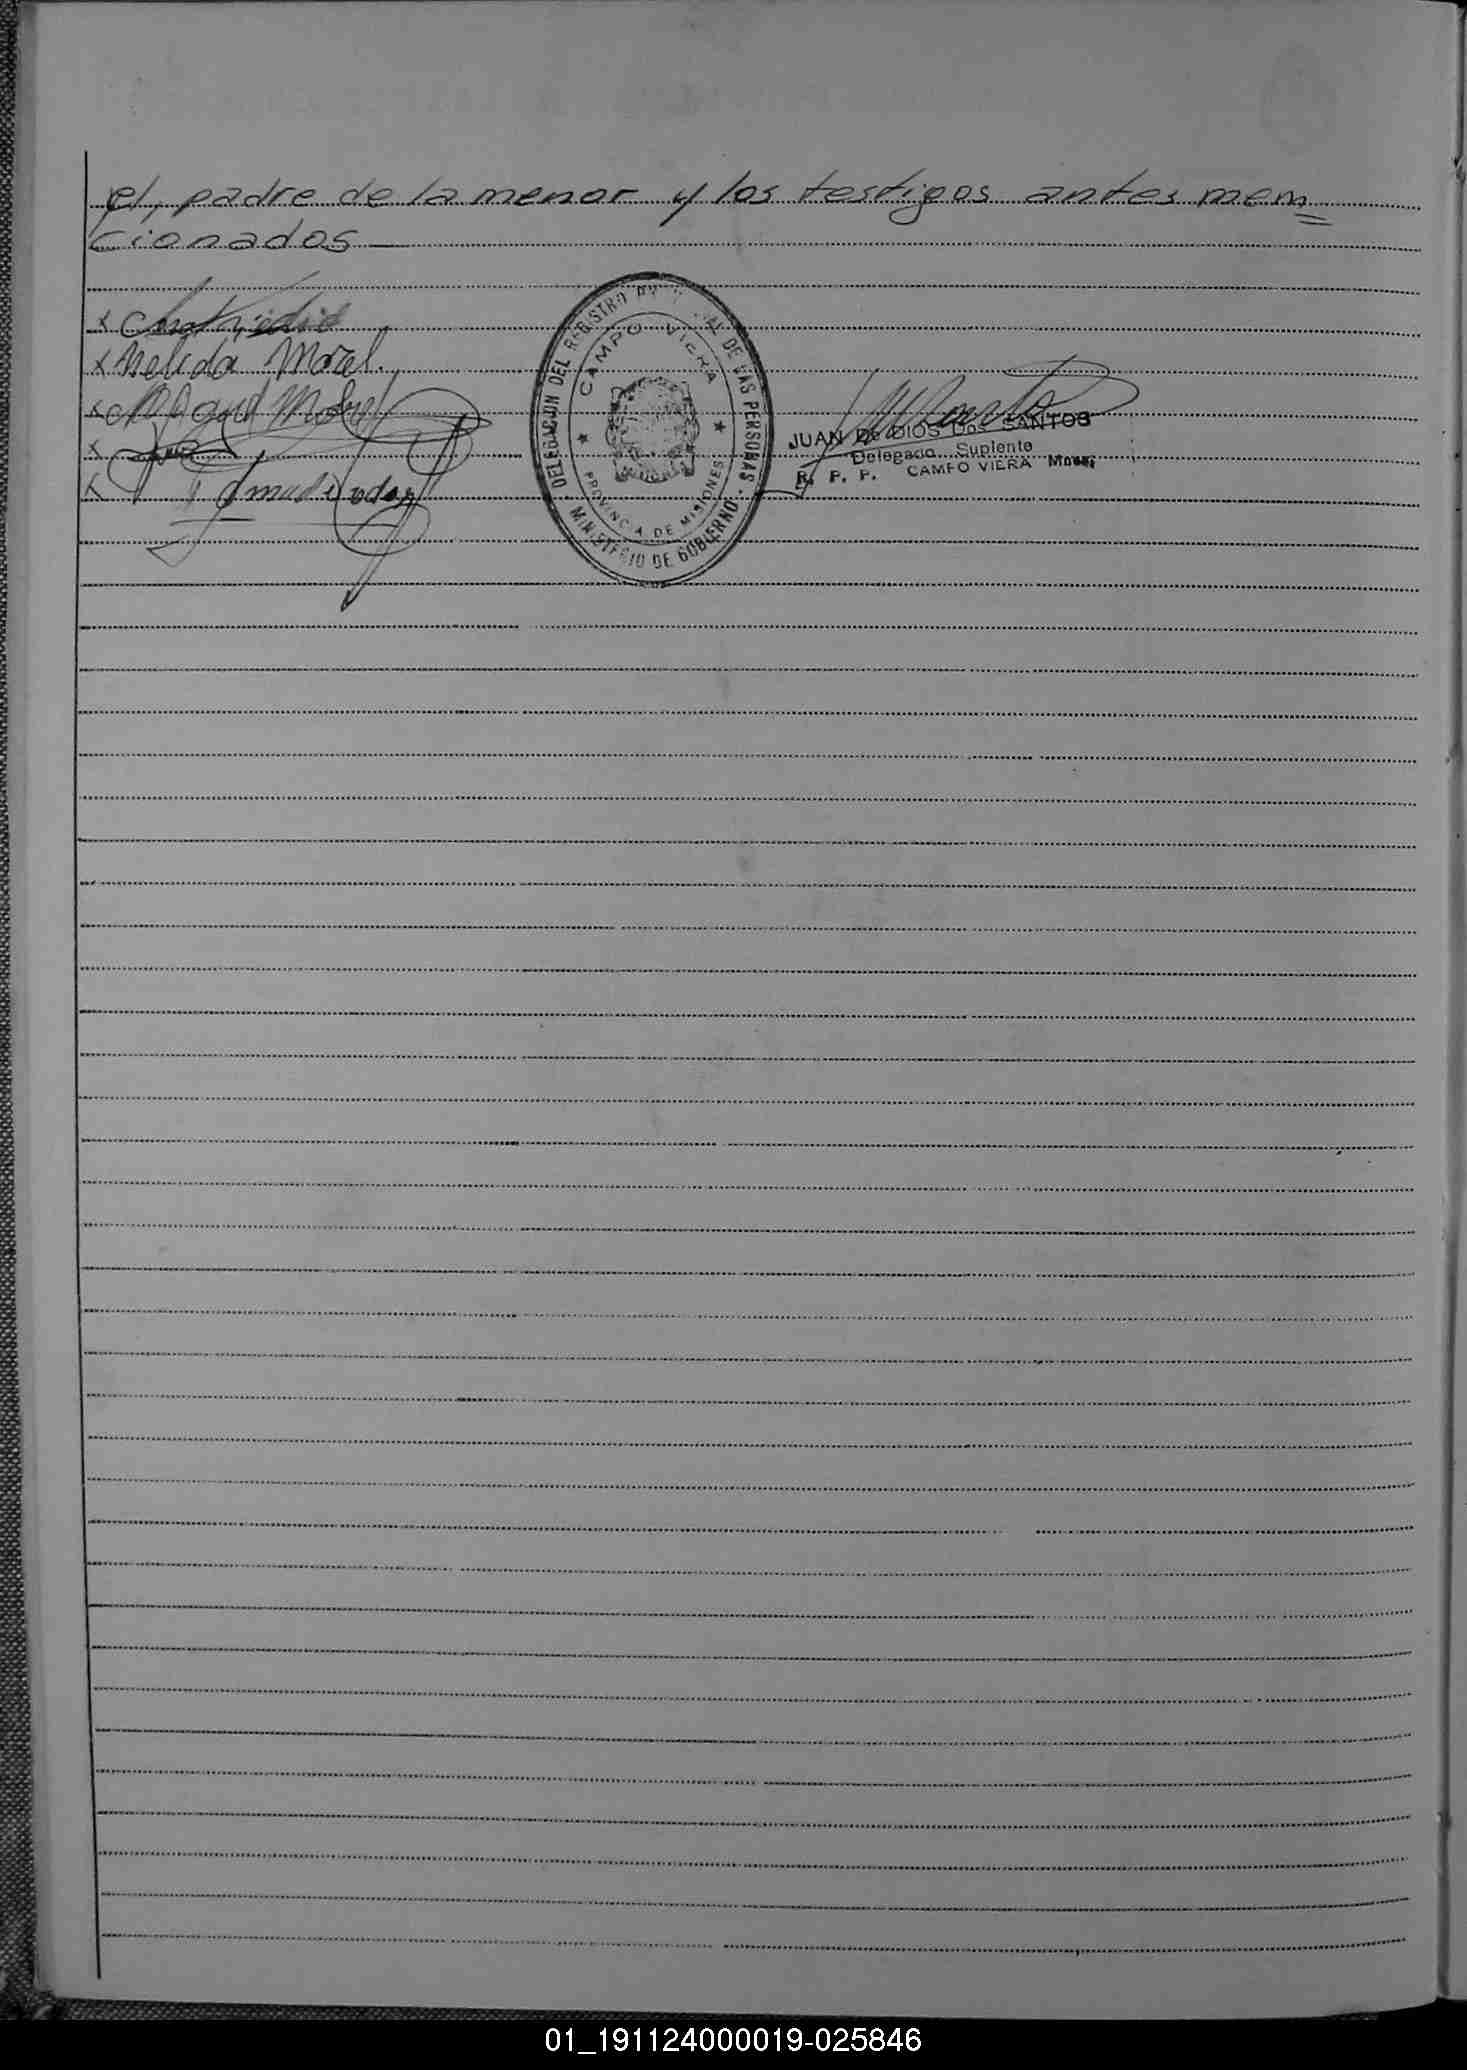 el, padre de la menor y los testigos antes men=
cionados
x
x Nelida Morel.
x Morel
x
x
DELEGACION DEL REGISTRO DE LAS PERSONAS
CAMPO VIERA
PROVINCIA DE MISIONES
MINISTERIO DE GOBIERNO
JUAN De DIOS Dos SANTOS
Delegado Suplente
R. P. P. CAMPO VIERA Mnes.
01_191124000019-025846